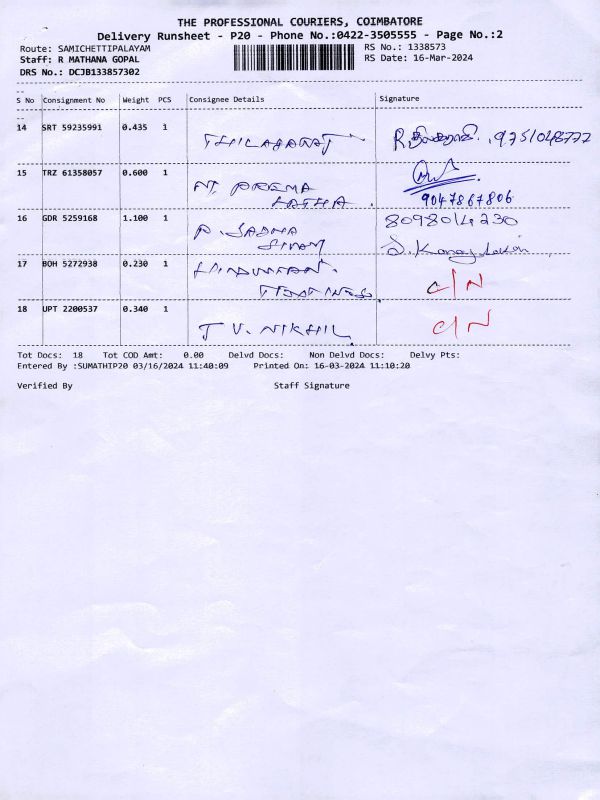 THE PROFESSIONAL COURIERS, COIMBATORE
Delivery Runsheet - P20 - Phone No.:0422-3505555 - Page No.:2
Route: SAMICHETTIPALAYAM
RS No.: 1338573
Staff: R MATHANA GOPAL
RS Date: 16-Mar-2024
DRS No.: DCJB133857302
S No Consignment No Weight PCS Consignee Details Signature
14 SRT 59235991 0.435 1 THILAGARAJ
15 TRZ 61358057 0.600 1 M. PREEMA
LATHA. 9047867806
16 GDR 5259168 1.100 1 P. SADHA 8098014230
SIVAM
17 BOH 5272938 0.230 1 C/N
18 UPT 2200537 0.340 1 T V. NIKHIL C/N
Tot Docs: 18 Tot COD Amt: 0.00 Delvd Docs: Non Delvd Docs: Delvy Pts:
Entered By :SUMATHIP20 03/16/2024 11:40:09 Printed On: 16-03-2024 11:10:20
Verified By Staff Signature